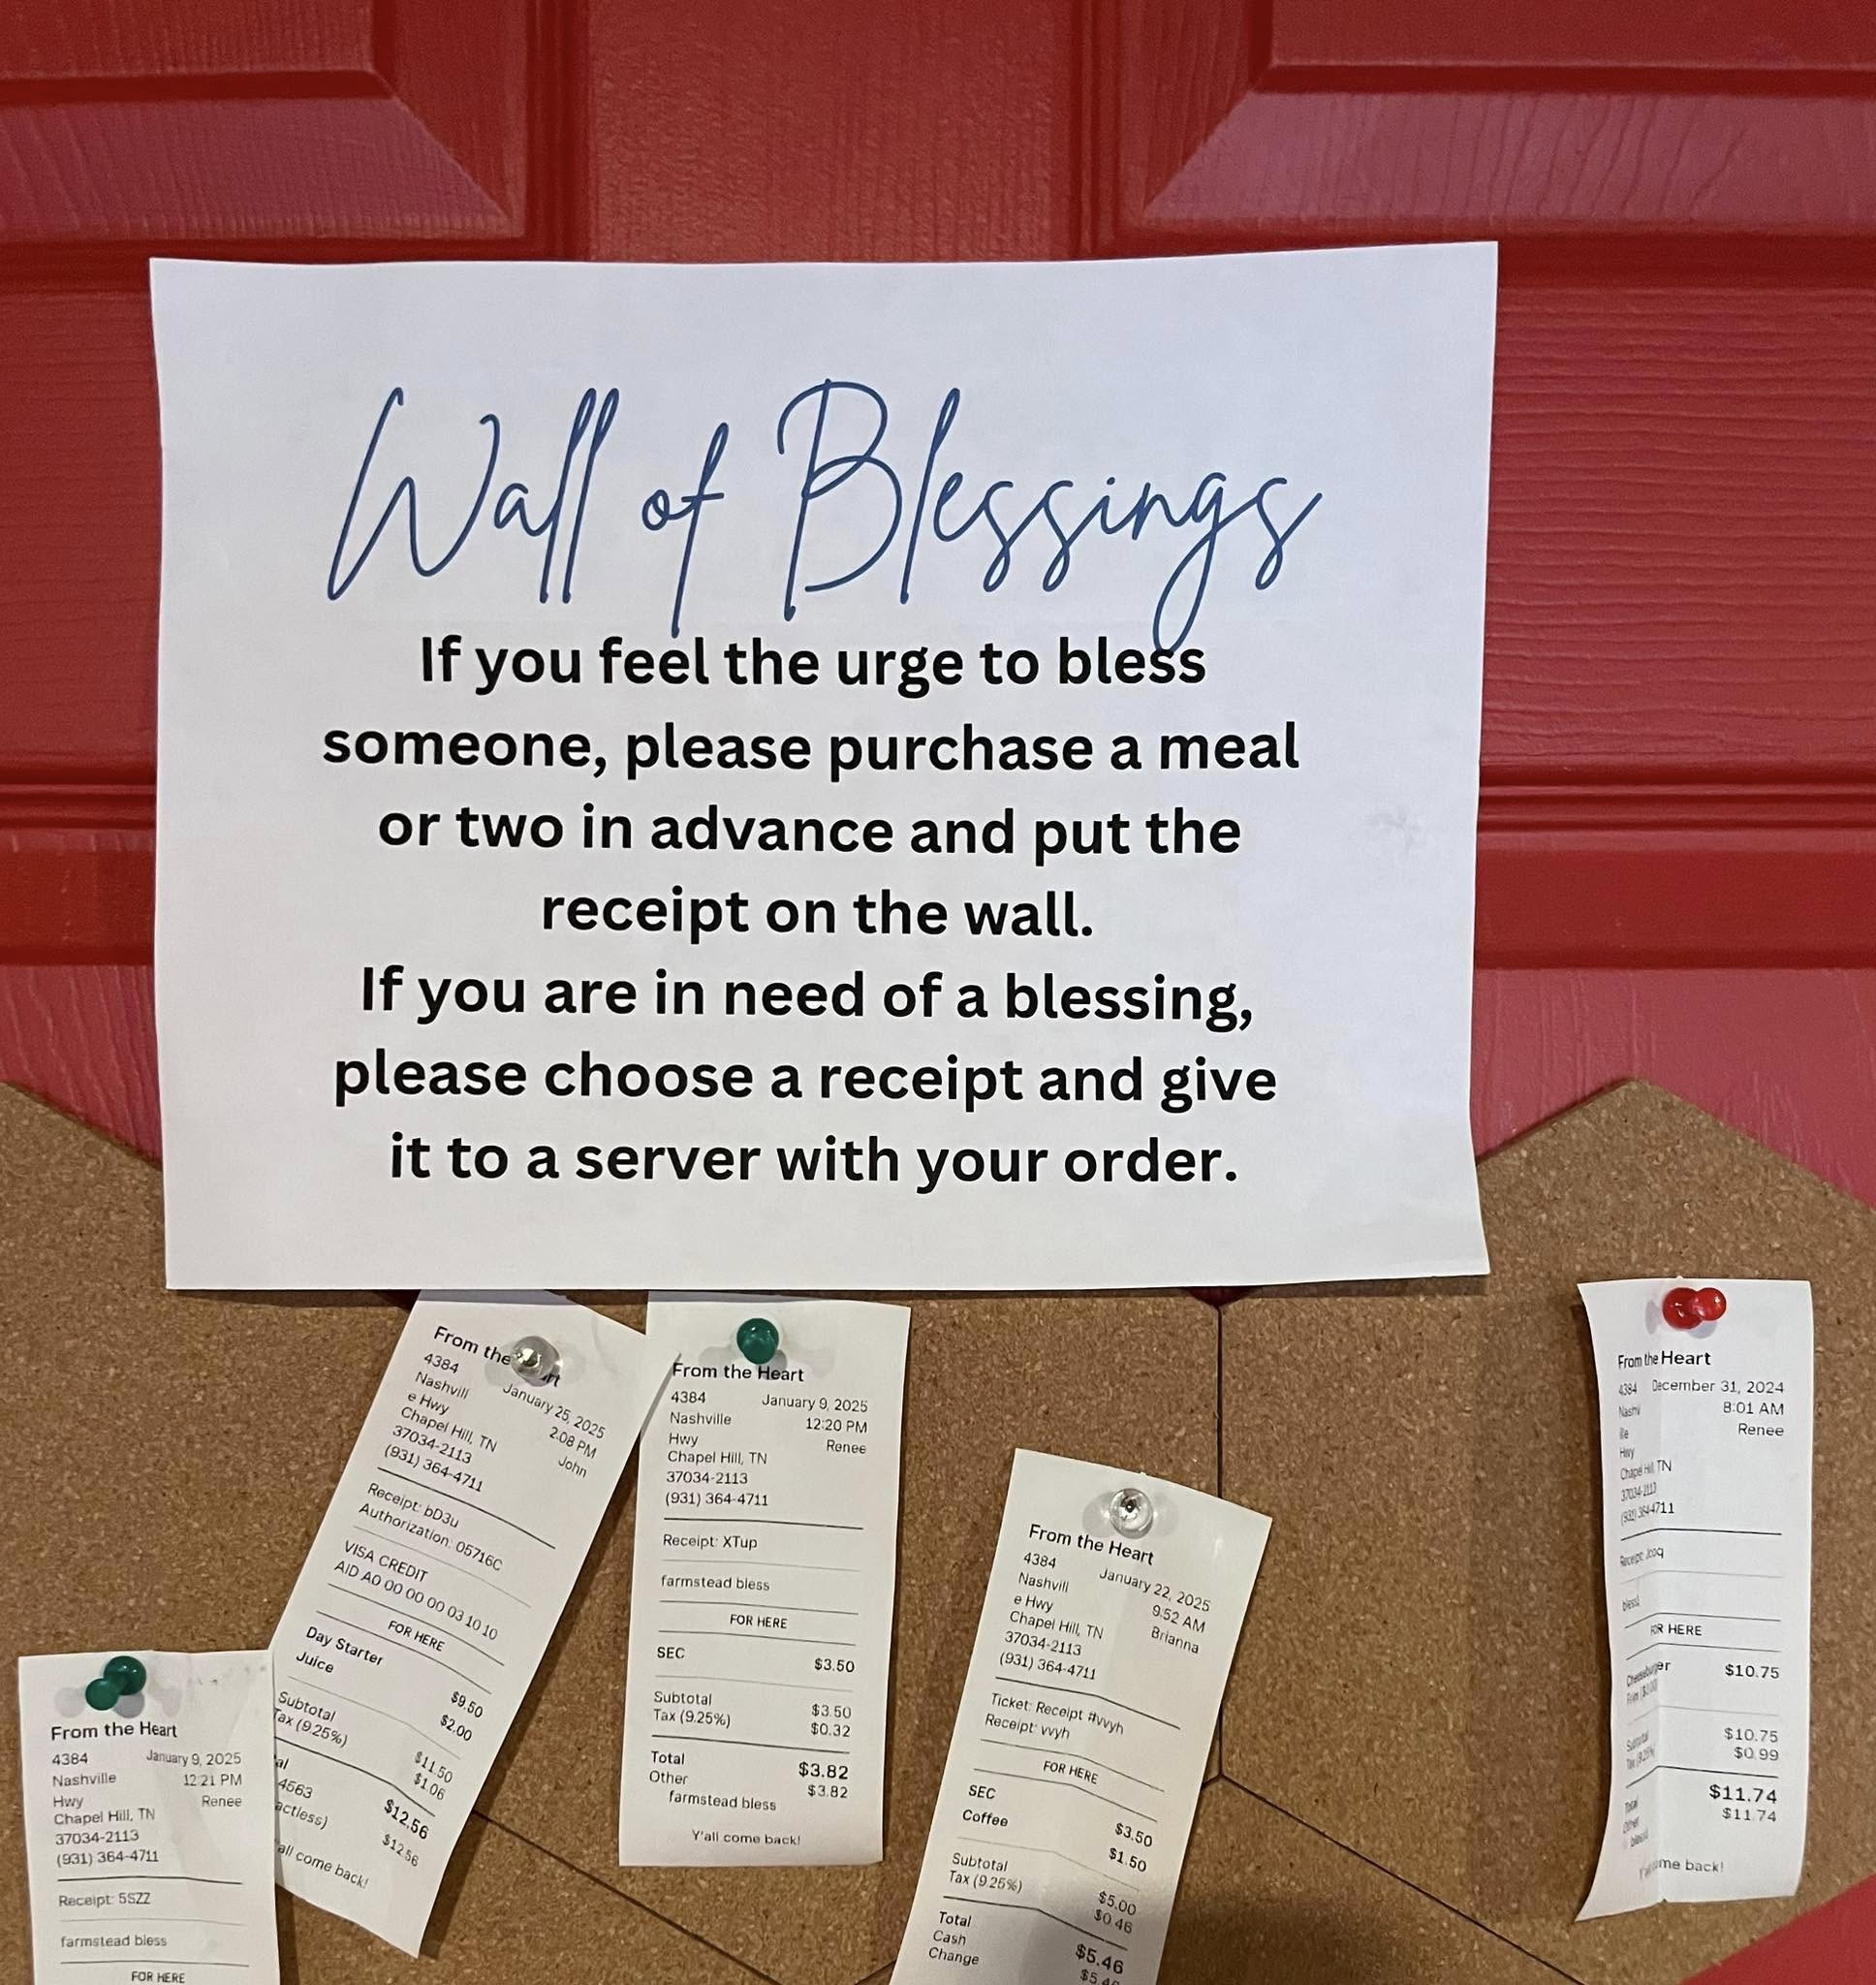 Wall of Blessings
If you feel the urge to bless
someone, please purchase a meal
or two in advance and put the
receipt on the wall.
If you are in need of a blessing,
please choose a receipt and give
it to a server with your order.
From the Heart
4384 January 9, 2025
Nashville 12:21 PM
Hwy Renee
Chapel Hill, TN
37034-2113
(931) 364-4711
Receipt: 5SZZ
farmstead bless
FOR HERE
From the
4384 January 25, 2025
Nashvill 2:08 PM
e Hwy John
Chapel Hill, TN
37034-2113
(931) 364-4711
Receipt: bD3u
Authorization: 05716C
VISA CREDIT
AID A0 00 00 00 03 10 10
FOR HERE
Day Starter $9.50
Juice $2.00
Subtotal $11.50
Tax (9.25%) $1.06
al $12.56
4563 $12.56
actless)
all come back!
From the Heart
4384 January 9, 2025
Nashville 12:20 PM
Hwy Renee
Chapel Hill, TN
37034-2113
(931) 364-4711
Receipt: XTup
farmstead bless
FOR HERE
SEC $3.50
Subtotal $3.50
Tax (9.25%) $0.32
Total $3.82
Other $3.82
farmstead bless
Y'all come back!
From the Heart
4384 January 22, 2025
Nashvill 9:52 AM
e Hwy Brianna
Chapel Hill, TN
37034-2113
(931) 364-4711
Ticket: Receipt #vvyh
Receipt: vvyh
FOR HERE
SEC $3.50
Coffee $1.50
Subtotal $5.00
Tax (9.25%) $0.46
Total $5.46
Cash $5.46
Change
From the Heart
4384 December 31, 2024
Nashvi 8:01 AM
lle Renee
Hwy
Chapel Hill, TN
37034-2113
(931) 364-4711
Receipt:
FOR HERE
Cheeseburger $10.75
Subtotal $10.75
Tax (9.25%) $0.99
Total $11.74
Other $11.74
Y'all come back!